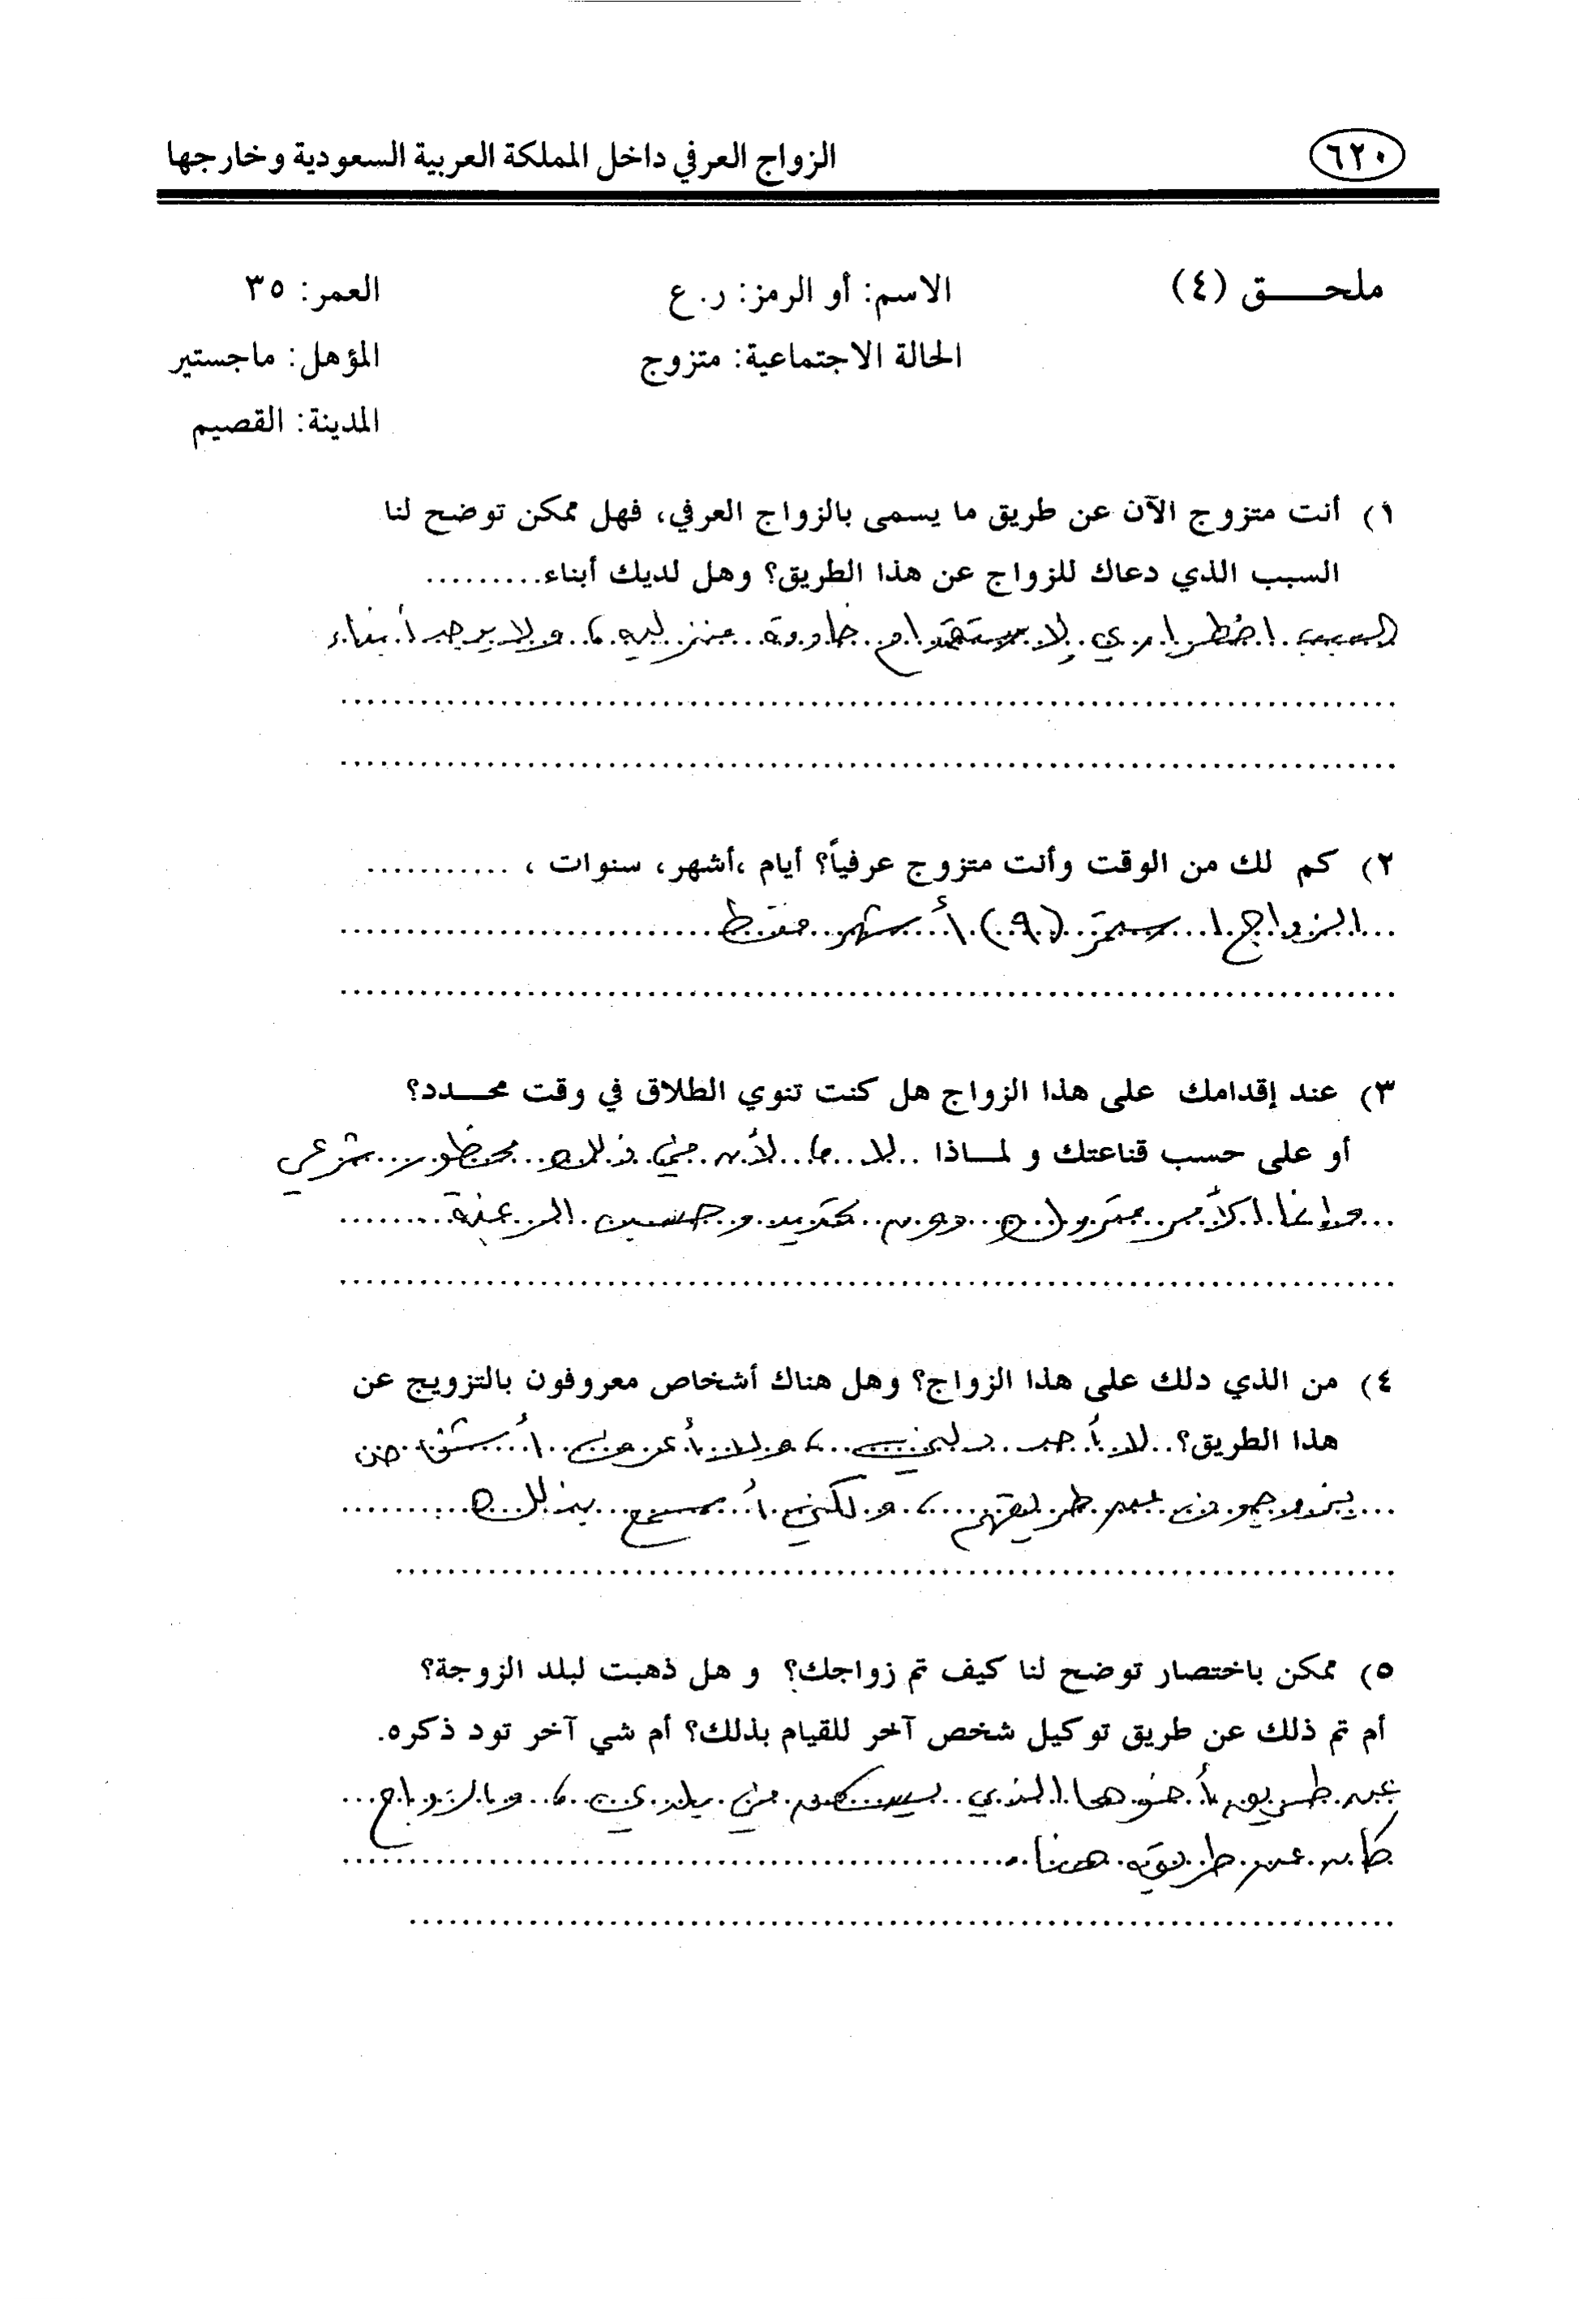 ٦٢٠ الزواج العرفي داخل المملكة العربية السعودية وخارجها
ملحـــــق (٤) الاسم: أو الرمز: ر.ع العمر: ٣٥
الحالة الاجتماعية: متزوج المؤهل: ماجستير
المدينة: القصيم
١) أنت متزوج الآن عن طريق ما يسمى بالزواج العرفي، فهل ممكن توضح لنا
السبب الذي دعاك للزواج عن هذا الطريق؟ وهل لديك أبناء.........
السبب اضطراري لاستقدام خادمة منزليه، ولا يوجد أبناء
٢) كم لك من الوقت وأنت متزوج عرفياً؟ أيام ،أشهر، سنوات ، ...........
الزواج استمر (٩) أشهر فقط
٣) عند إقدامك على هذا الزواج هل كنت تنوي الطلاق في وقت محـــدد؟
أو على حسب قناعتك و لمـــاذا .. لا .. لأن في ذلك محظور شرعي
وإنما الأمر متروك دون تحديد وحسب الرغبة
٤) من الذي دلك على هذا الزواج؟ وهل هناك أشخاص معروفون بالتزويج عن
هذا الطريق؟.. لا أحد دلني، ولا أعرف أشخاص
يزوجون عن طريقهم، ولكني أسمع بذلك
٥) ممكن باختصار توضح لنا كيف تم زواجك؟ و هل ذهبت لبلد الزوجة؟
أم تم ذلك عن طريق توكيل شخص آخر للقيام بذلك؟ أم شي آخر تود ذكره.
عن طريق أخوها الذي يسكن في بلدي، والزواج
كان عن طريقه هنا.